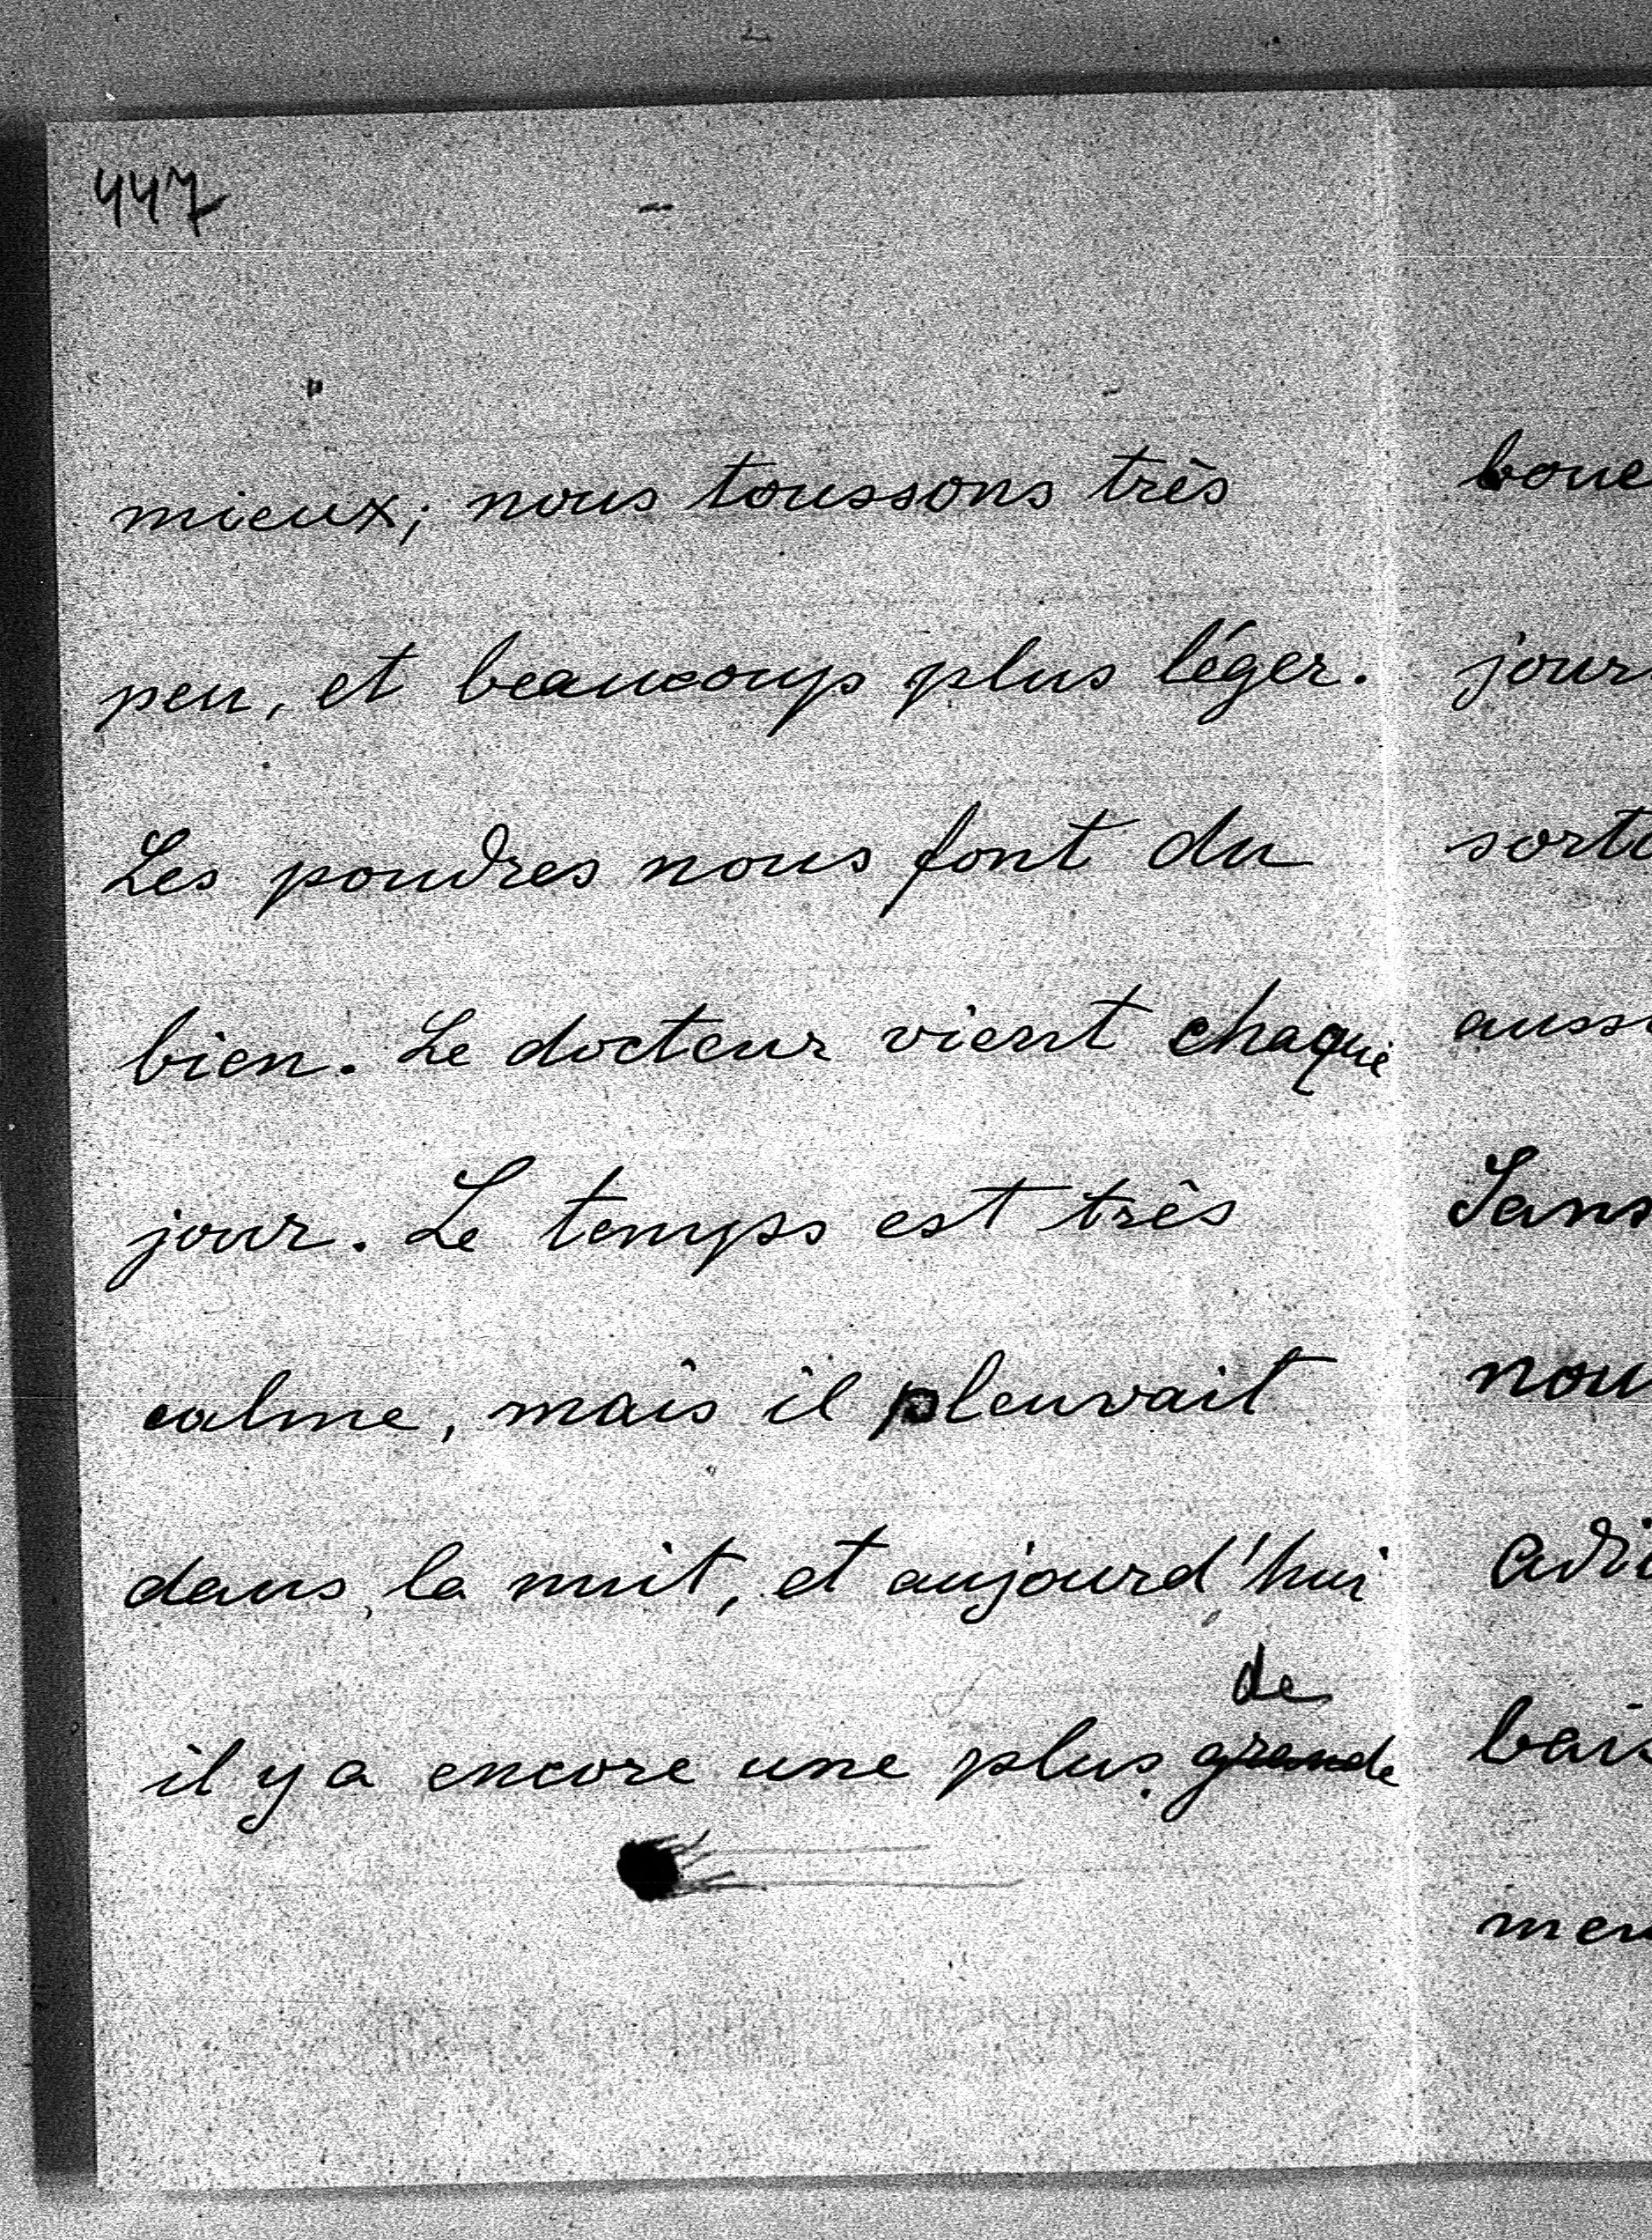 447
mieux; nous toussons très
peu, et beaucoup plus léger.
Les poudres nous font du
bien. Le docteur vient chaque
jour. Le temps est très
calme, mais il pleuvait
dans la nuit, et aujourd'hui
de
il y a encore une plus grande
boue
jour
sort
aussi
Sans
nou
adi
bais
men